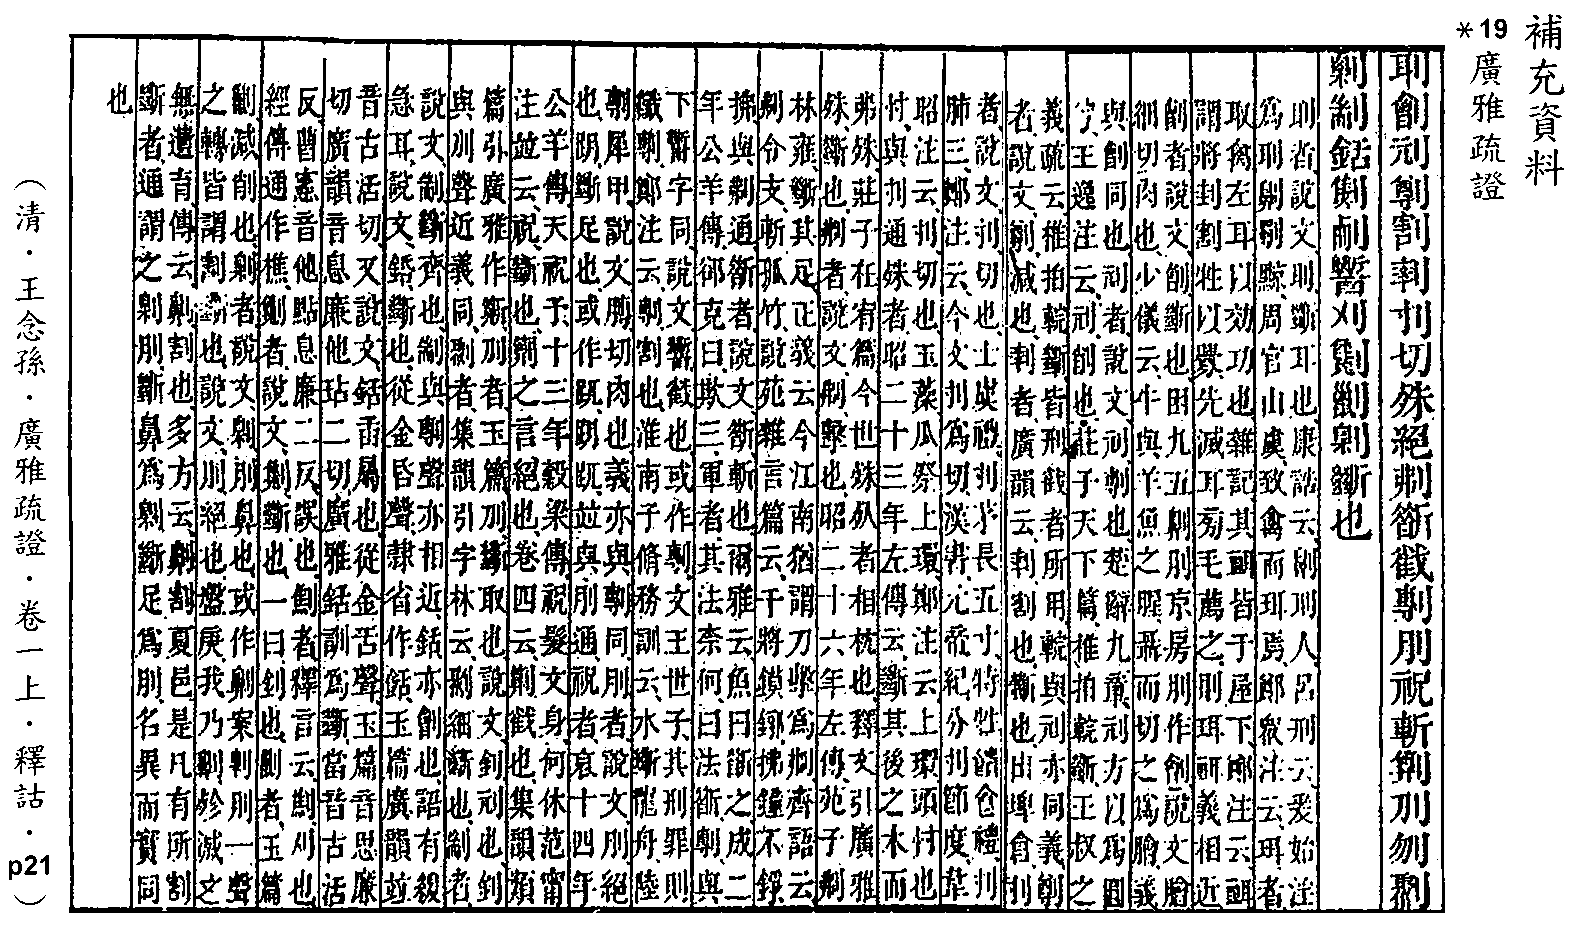 補充資料
*19 廣雅疏證
刵創刓剸割刲刊切殊絕刜斮截剸刖祝斬劗刐刎剟
制銛劁䜭刈劓斷也
刵者說文刵斷耳也康誥云劓刵人呂刑云爰始淫
爲刵劓黥周官山虞致禽而珥焉鄭衆注云珥者
取禽左耳以效功也雜記其衈皆于屋下鄭注云衈
謂將刲割牲以釁先滅耳旁毛薦之刵珥衈義相近
創者說文創斷也困九五劓刖京房刖作創說文膾
細切肉也少儀云牛與羊魚之腥聶而切之爲膾義
與創同也刓者說文刓剸也楚辭九章刓方以爲圜
兮王逸注云刓創也莊子天下篇椎拍輐斷王叔之
義疏云椎拍輐斷皆刑截者所用輐與刓亦同義剸
者說文剸減也刲者廣韻云刲割也斷也出埤倉刌
者說文刌切也士喪禮刌茅長五寸特牲饋食禮刌
肺三鄭注云今文刌爲切漢書元帝紀分刌節度韋
昭注云刌切也玉藻瓜祭上環鄭注云上環頭忖也
忖與刌通殊者昭二十三年左傳云斷其後之木而
弗殊莊子在宥篇今世殊死者相枕也釋文引廣雅
殊斷也刜者說文刜擊也昭二十六年左傳苑子刜
林雍斷其足正義云今江南猶謂刀擊爲刜齊語云
刜令支斬孤竹說苑雜言篇云干將鏌鋣拂鐘不錚
拂與刜通斮者說文斮斬也爾雅云魚曰斮之成二
年公羊傳郤克曰欺三軍者其法奈何曰法斮斮與
下䜭字同說文䜭截也或作剸文王世子其刑罪則
纖剸鄭注云剸割也淮南子脩務訓云水斷龍舟陸
剸犀甲說文膞切肉也義亦與剸同刖者說文刖絕
也跀斷足也或作䟦跀䟦並與刖通祝者哀十四年
公羊傳天祝予十三年穀梁傳祝髮文身何休范甯
注並云祝斷也劗之言絕也卷四云劗截也集韻類
篇引廣雅作斷刐者玉篇刐斷取也說文釗刓也釗
與刐聲近義同剟者集韻引字林云剟細斷也制者
說文制斷齊也制與剸聲亦相近銛亦創也語有緩
急耳說文銽斷也從金昏聲隸省作銛玉篇廣韻並
音古活切又說文銛臿屬也從金舌聲玉篇音思廉
切廣韻音息廉他玷二切廣雅銛訓爲斷當音古活
反曹憲音他點息廉二反誤也劁者釋言云劁刈也
經傳通作樵劖者說文劖斷也一曰釗也者玉篇
減削也劓者說文劓刖鼻也或作劓案劓刖一聲
之轉皆謂割斷也說文刖絕也盤庚我乃劓殄滅之
無遺育傳云劓割也多方云劓割夏邑是凡有所割
斷者通謂之劓刖斷鼻爲劓斷足爲刖名異而實同
也
（清．王念孫．廣雅疏證．卷一上．釋詁．p21）